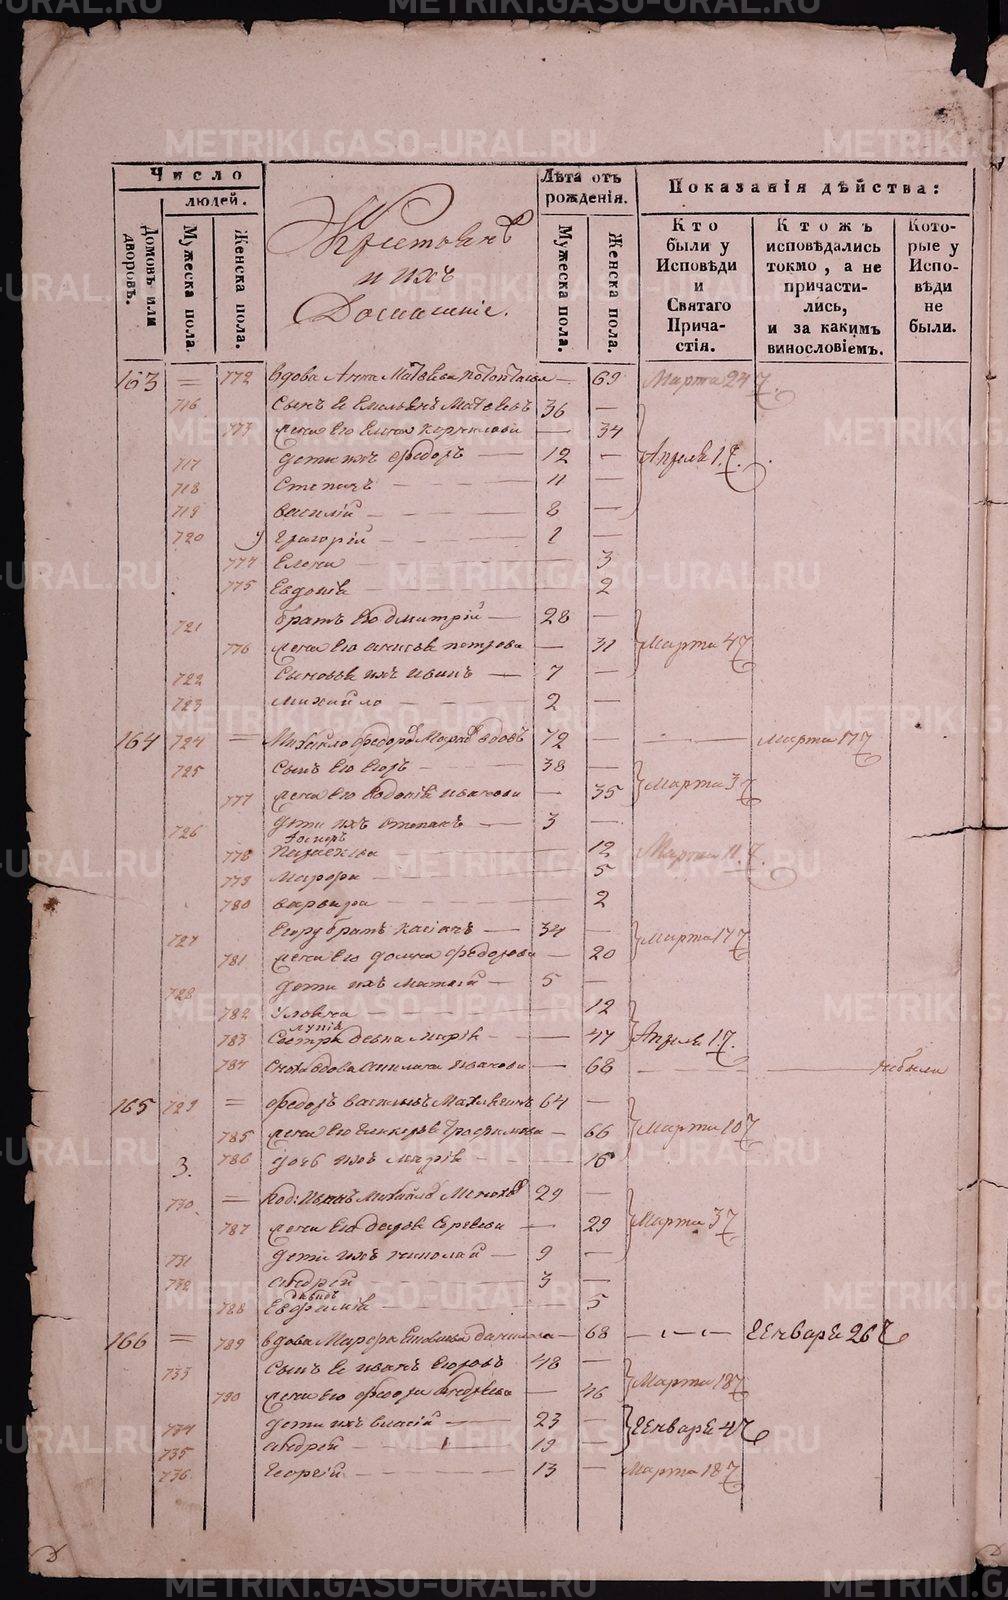 Число
людей.
Домовъ или дворовъ.
Мужеска пола.
Женска пола.
Крестьянъ
и ихъ
Домашніе.
Лѣта отъ рожденія.
Мужеска пола.
Женска пола.
Показанія дѣйства:
Кто были у Исповѣди и Святаго Причастія.
Ктожъ исповѣдались токмо, а не причастились, и за какимъ винословіемъ.
Которые у Исповѣди не были.
163 = 772 вдова Анна Матвѣева — 69 Марта 24
716 сынъ ее Емельянъ Матвеевъ 36 —
773 жена его Елена — 34
717 дети ихъ Федоръ — 12 — Апреля 1
718 Степанъ 11 —
719 Василій 8 —
720 Григорій 1 —
774 Елена 3
775 Евдокія 2
721 братъ его Дмитрій — 28 —
776 жена его Анисья Петрова — 31 Марта 4
722 сыновья ихъ Иванъ — 7 —
723 Михайло 2 —
164 724 — Михайло Федоровъ вдовъ 72 — Марта 17
725 сынъ его Егоръ 38 —
777 жена его Евдокія Иванова — 35 Марта 3
726 дети ихъ Степанъ — 3 —
778 Парасковья 12 Марта 11
779 Марфа 5
780 Варвара 2
727 Егору братъ Касіянъ — 34 —
781 жена его Домна Федорова — 20 Марта 17
728 дети ихъ Матвей — 5 —
782 Улияна 12
783 Сестра девка Марія — 47 Апреля 1
784 Сноха вдова Иванова — 68 небыли
165 729 = Федоръ Васильевъ 64 —
785 жена его Гликерья Трофимова — 66 Марта 10
3. 786 дочь ихъ Марія 16
730 = Михайло 29 —
787 жена его Сергеева — 29 Марта 3
731 дети ихъ Николай — 9 —
732 Андрей 3 —
788 Евфимія 5
166 = 789 вдова Марфа Данилова — 68 — Генваря 26
733 сынъ ее Иванъ Егоровъ 48 —
790 жена его Федора Андреева — 46 Марта 18
734 дети ихъ Власій 23 — Генваря 4
735 Андрей 19 —
736 Георгій 13 — Марта 18
METRIKI.GASO-URAL.RU